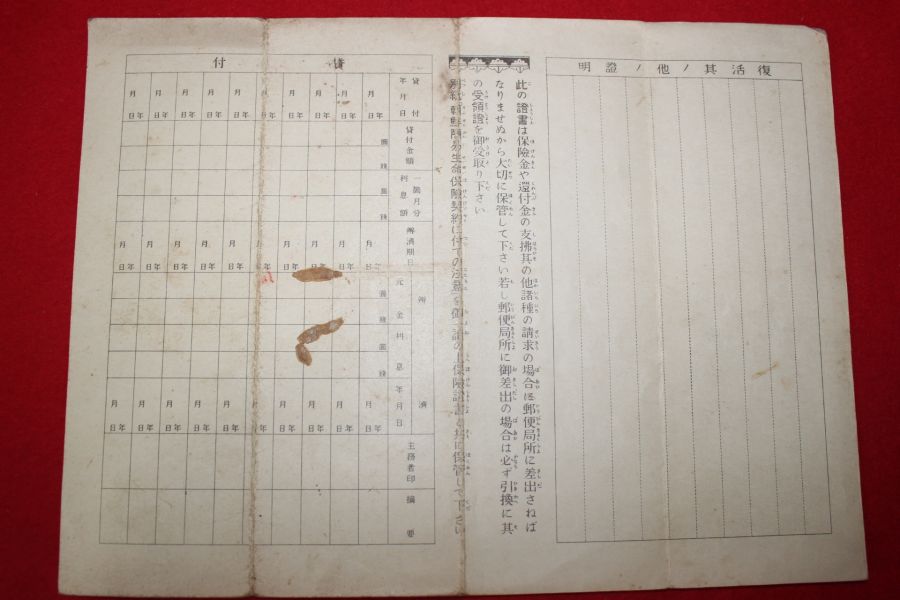 復活其ノ他ノ證明
此の證書は保險金や還付金の支拂其の他諸種の請求の場合に郵便局所に差出さねば
なりませぬから大切に保管して下さい若し郵便局所に御差出の場合は必ず引換に其
の受領證を御受取り下さい
別紙朝鮮簡易生命保險契約に付ての注意を御一讀の上保險證書と共に保管して下さい
貸付
貸付年月日
年月日
年月日
年月日
年月日
年月日
年月日
年月日
年月日
年月日
貸付金額
一箇月分利息額
辨濟期日
年月日
年月日
年月日
年月日
年月日
年月日
年月日
年月日
年月日
辨濟
元金
利息
年月日
年月日
年月日
年月日
年月日
年月日
年月日
年月日
年月日
年月日
主務者印
摘要